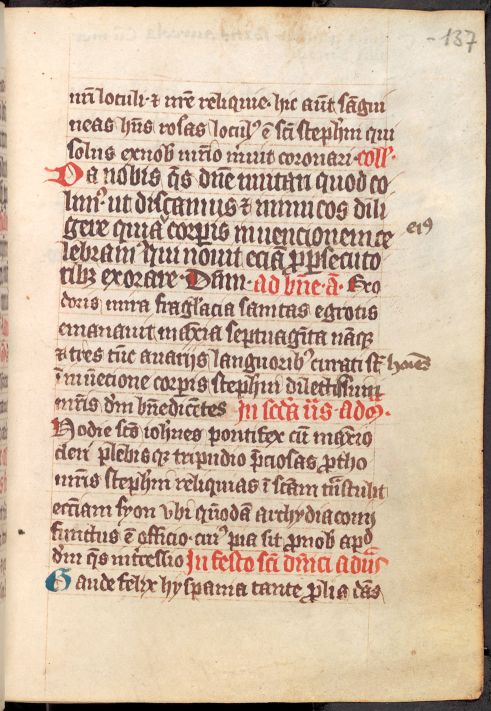 -137
nr̄i loculi · ⁊ nr̄e reliquie · hic aūt sāgui
neas hn̄s rosas locul⁹ ē sc̄i stephni qui
solus ex nob̄ mr̄io m̄uit coronari · coll̄ ·
Da nobis q̄s dn̄e imitari quod co
lim⁹ · ut discamus ⁊ inimicos dili
gere quia corp̄is inuencionem ce
lebram⁹ qui nouit eciā p̄ p̄secuto
eī⁹
ribȝ exorare · Dn̄m · ad bn̄e · ā · Exo
doris mira fraglācia sanitas egrotis
emanauit maxīa septuagīta nāq̄
⁊ tres tūc auarijs languorib⁹ curati st̄
hoīes
ī inuētione corp̄is stephni dilectissimi
mr̄is dn̄m bn̄edicētes In sc̄da ūs · ad m̄ ·
Hodie sc̄s ioh̄nes pontifex cū maxīo
cleri plebisqȝ tripudio p̄ciosas p̄tho
mr̄is stephni reliquias ī sc̄am tn̄stulit
ecc̄iam syon vbi q̄ndam archydiaconi
functus ē officio · cui⁹ pia sit p̄ nob̄ apd̄
dn̄m q̄s int̄cessio In festo sc̄i dn̄ici ad ūs
Gaude felix hyspania tante p̄lis dās